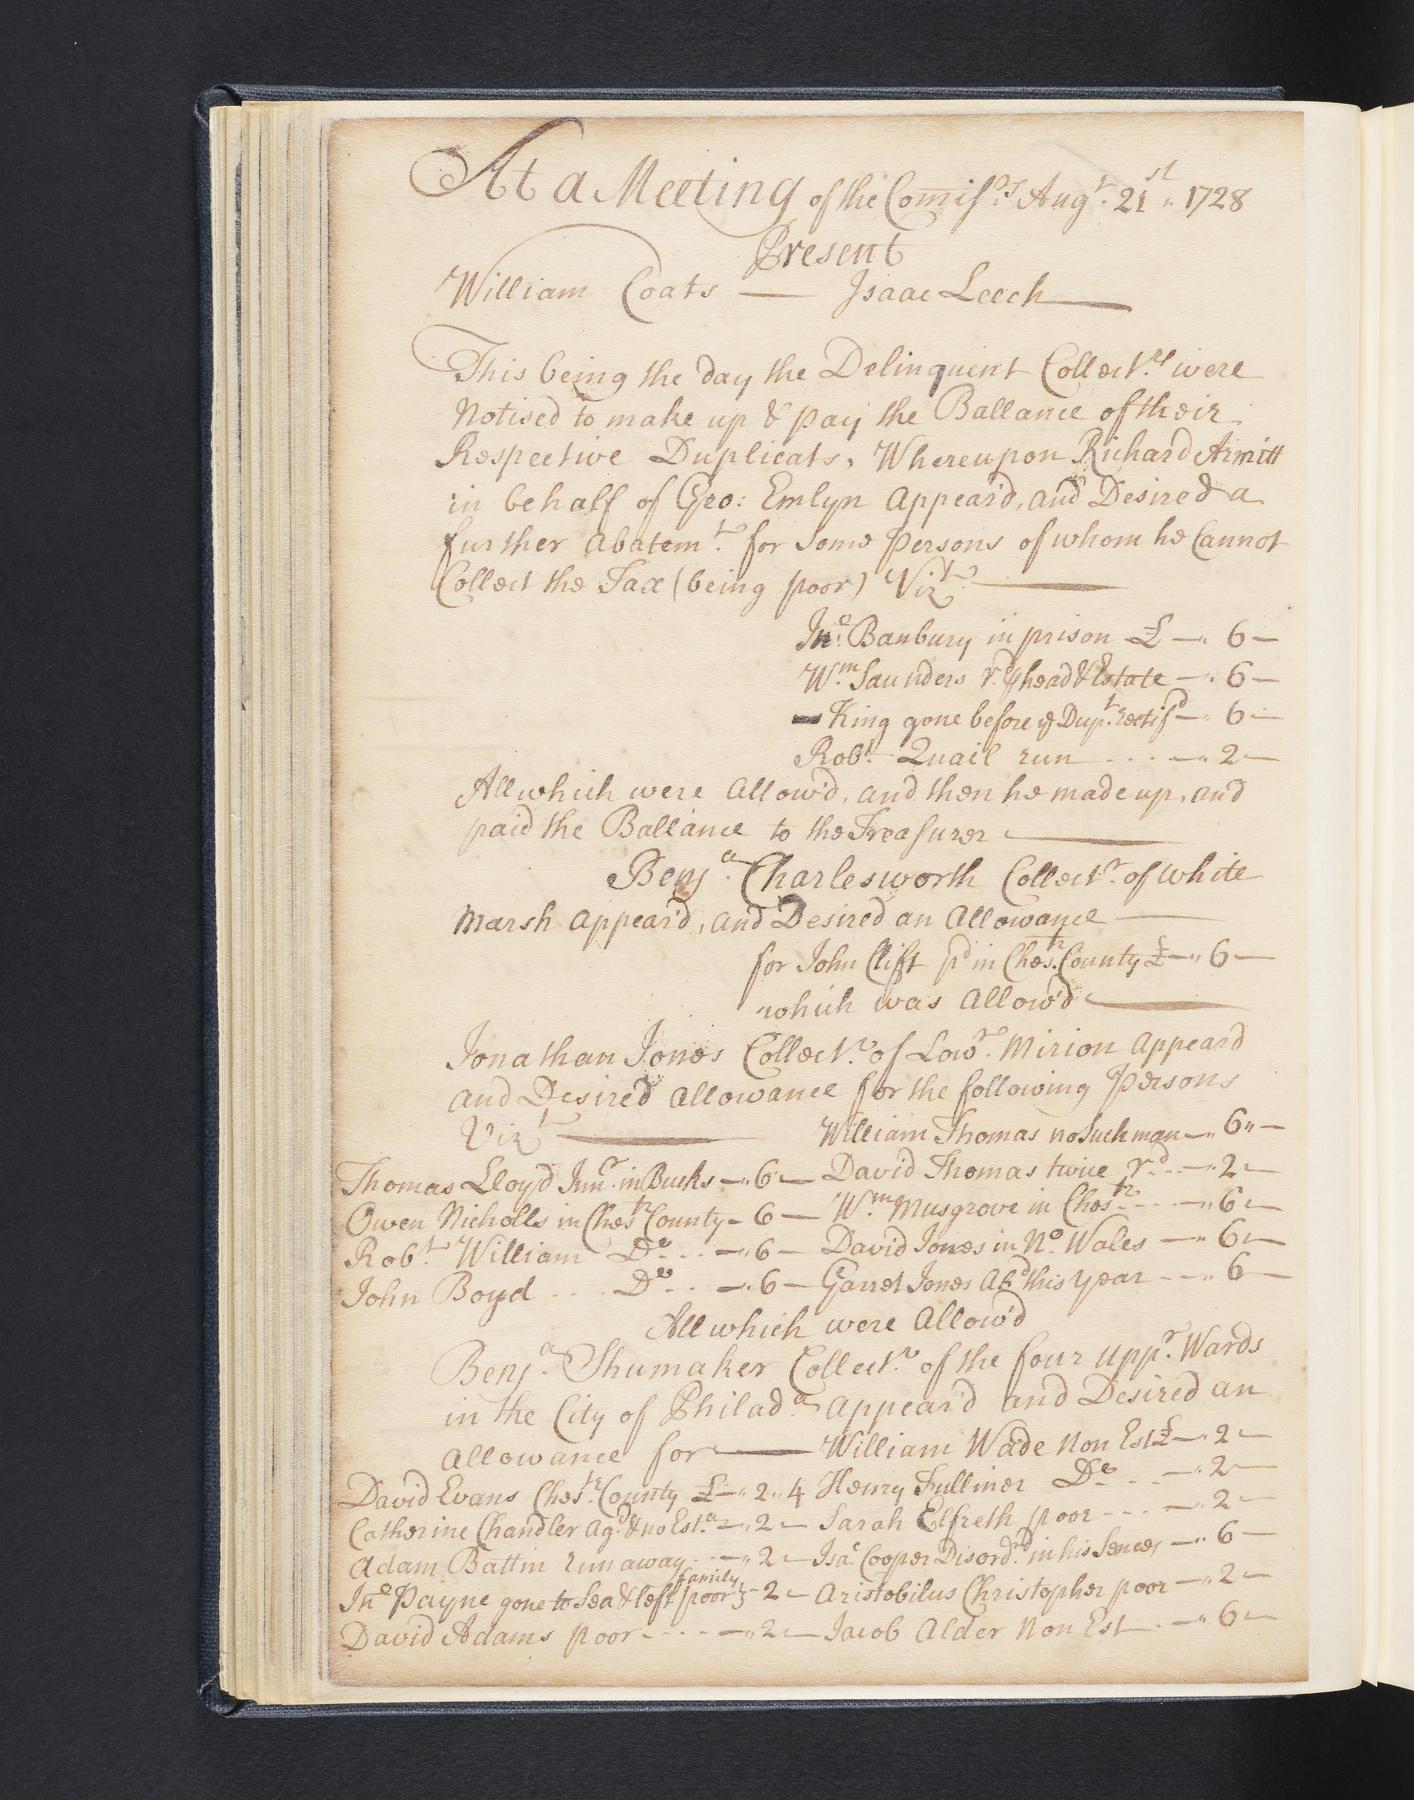 At a Meeting of the Comis.rs Augt. 21st 1728
Present
William Coats — Isaac Leech
This being the day the Delinquent Collect.rs were
Notised to make up & pay the Ballance of their
Respective Duplicats, Whereupon Richard Armitt
in behalf of Geo: Emlyn appear'd, and Desired a
further Abatem.t for Some Persons of whom he Cannot
Collect the Tax (being poor) Vizt
Jno. Banbury in prison £ — " 6 —
Wm. Saunders r.d head & Estate — " 6 —
— King gone before ye Dup.t rectif'd — " 6 —
Robt. Quail run . . . — " 2 —
All which were Allow'd, and then he made up, and
paid the Ballance to the Treasurer
Benja. Charlesworth Collect.r of White
Marsh appear'd, and Desired an Allowance
for John Clift pd in Ches.tr County £ — " 6 —
which was Allow'd
Jonathan Jones Collect.r of Lowr. Mirion Appeard
and Desired allowance for the following Persons
Vizt — William Thomas no Such man — " 6 " —
Thomas Lloyd Junr. in Bucks — " 6 — David Thomas twice r.d — " 2 —
Owen Nicholls in Chestr County — 6 — Wm. Musgrove in Chestr . . . — " 6 —
Robt. William Do. . . — " 6 — David Jones in No. Wales — " 6 —
John Boyd . . . Do. . . — " 6 — Garret Jones this year — " 6 —
All which were Allow'd
Benja. Shumaker Collect.r of the four uppr. Wards
in the City of Philada. appear'd and Desired an
allowance for — William Wade Non Est £ — " 2 —
David Evans Ches.tr County £ — " 2 " 4 Henry Fulliner Do . . — " 2 —
Catherine Chandler Ag.d & no Est.a — " 2 — Sarah Elfreth poor . . . — " 2 —
Adam Battin runaway . . — " 2 — Isa.c Cooper Disord.rd in his Sences — " 6 —
Jno Payne gone to Sea & left family poor } — 2 — Aristobilus Christopher poor — " 2 —
David Adams poor . . . — " 2 — Jacob Alder Non Est . — " 6 —